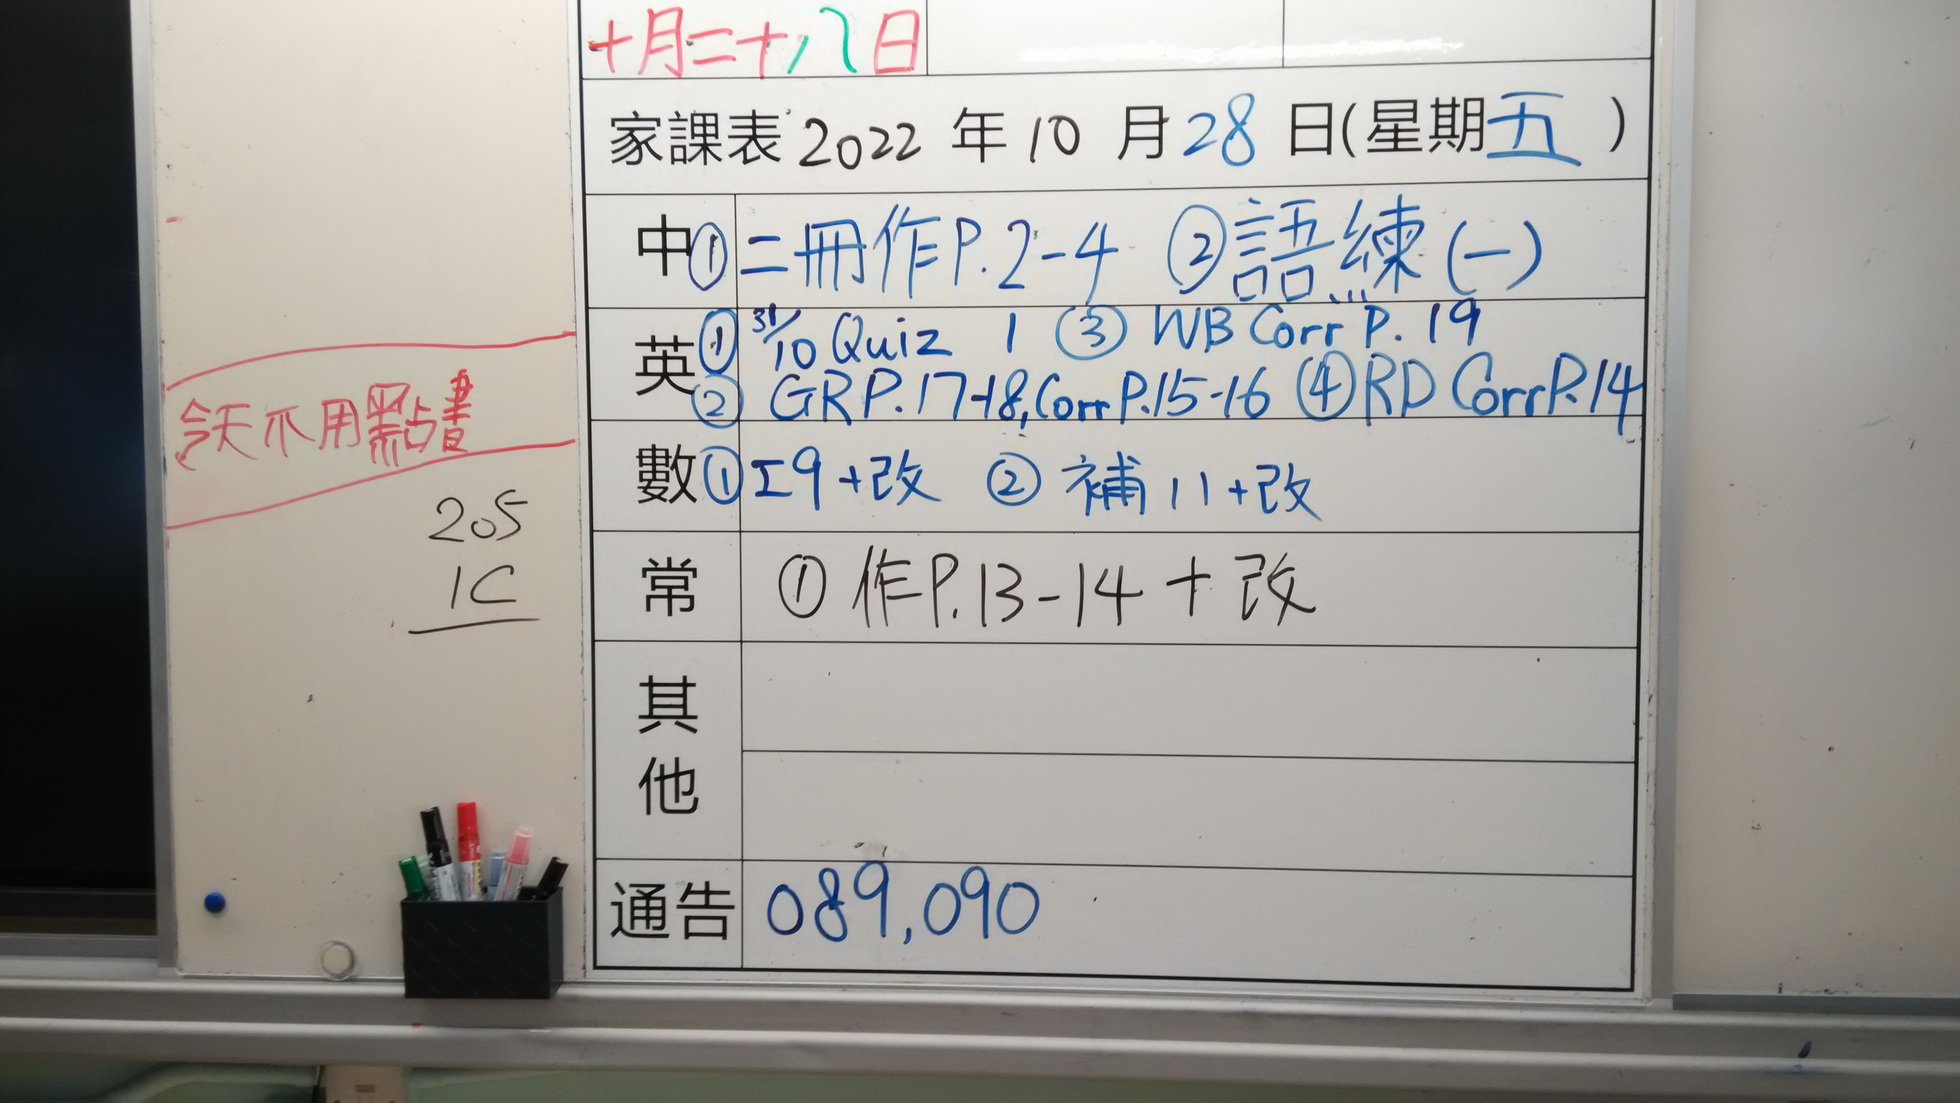 十月二十八日
家課表 2022 年 10 月 28 日(星期五)
中 ① 二冊作P.2-4 ② 語練(一)
英 ① 31/10 Quiz 1 ③ WB Corr P. 19
② GR P.17-18, Corr P.15-16 ④ RD Corr P.14
數 ① 工9+改 ② 補11+改
常 ① 作P.13-14+改
其他
通告 089,090
今天不用點書
205
1C